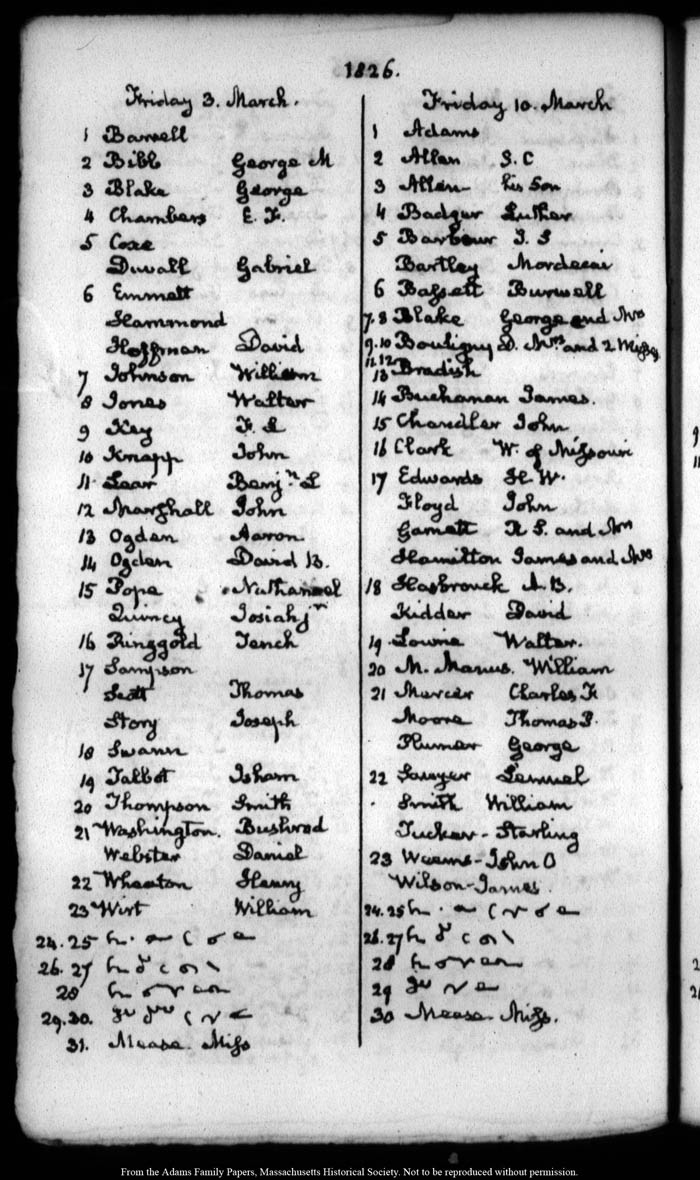 1826.
Friday 3. March.
1 Barrell
2 Bibb George M
3 Blake George
4 Chambers E. F.
5 Coxe
Duvall Gabriel
6 Emmett
Hammond
Hoffman David
7 Johnson William
8 Jones Walter
9 Key F. S
10 Knapp John
11. Lear Benj.n L
12 Marshall John
13 Ogden Aaron
14 Ogden David B.
15 Pope Nathaniel
Quincy Josiah jr
16 Ringgold Tench
17 Sampson
Scott Thomas
Story Joseph
18 Swann
19 Talbot Isham
20 Thompson Smith
21 Washington. Bushrod
Webster Daniel
22 Wheaton Henry
23 Wirt William
24. 25
26. 27
28
29. 30.
31. Mease Miss
Friday 10. March
1 Adams
2 Allen S. C
3 Allen his son
4 Badger Luther
5 Barbour J. S
Bartley Mordecai
6 Bassett Burwell
7. 8 Blake George and Mrs
9. 10 Bouligny D. Mrs and 2 Misses
11. 12
13 Bradish
14 Buchanan James.
15 Chandler John
16 Clark W. of Missouri
17 Edwards H. W.
Floyd John
Garnett R S. and Mrs
Hamilton James and Mrs
18 Hasbrouck A. B.
Kidder David
19. Lowrie Walter.
20 M. Manus. William
21 Mercer Charles F.
Moore Thomas P.
Plumer George
22 Sawyer Lemuel
Smith William
Tucker - Starling
23 Weems - John O
Wilson - James
24. 25
26. 27
28
29
30 Mease Miss.
From the Adams Family Papers, Massachusetts Historical Society. Not to be reproduced without permission.